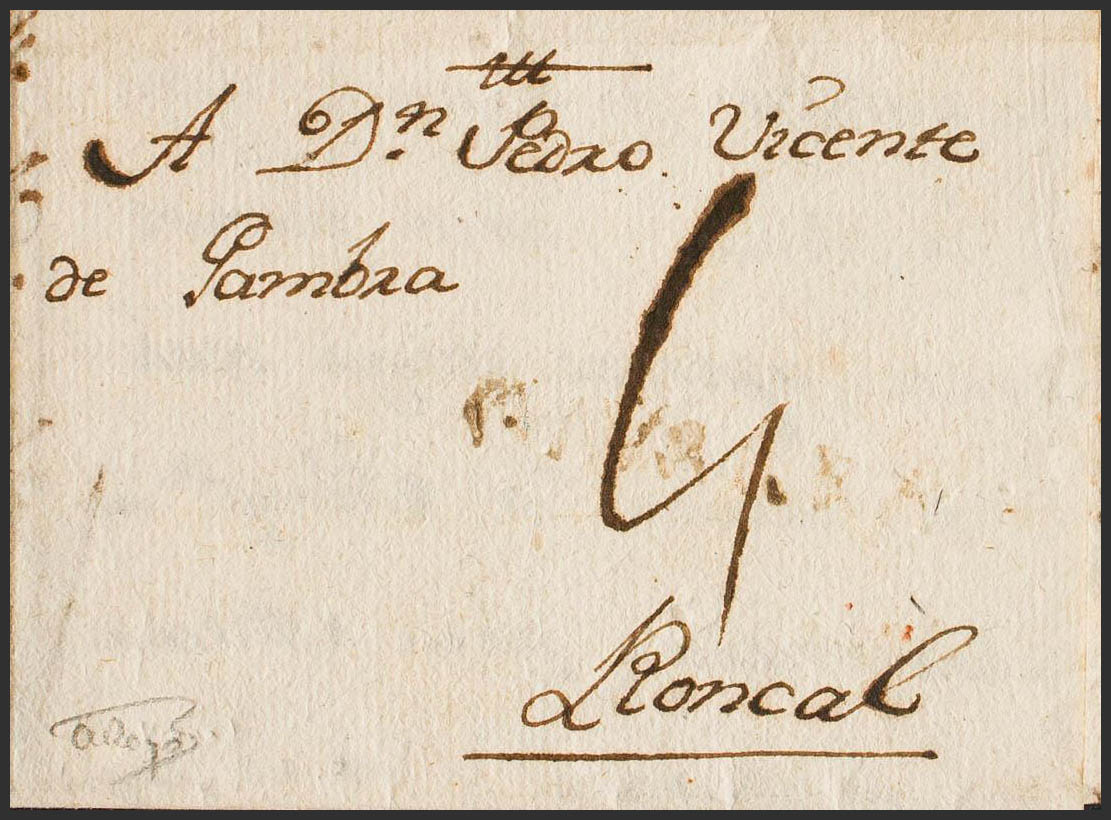 A Dn. Pedro Vicente
de Gambra
4
Roncal